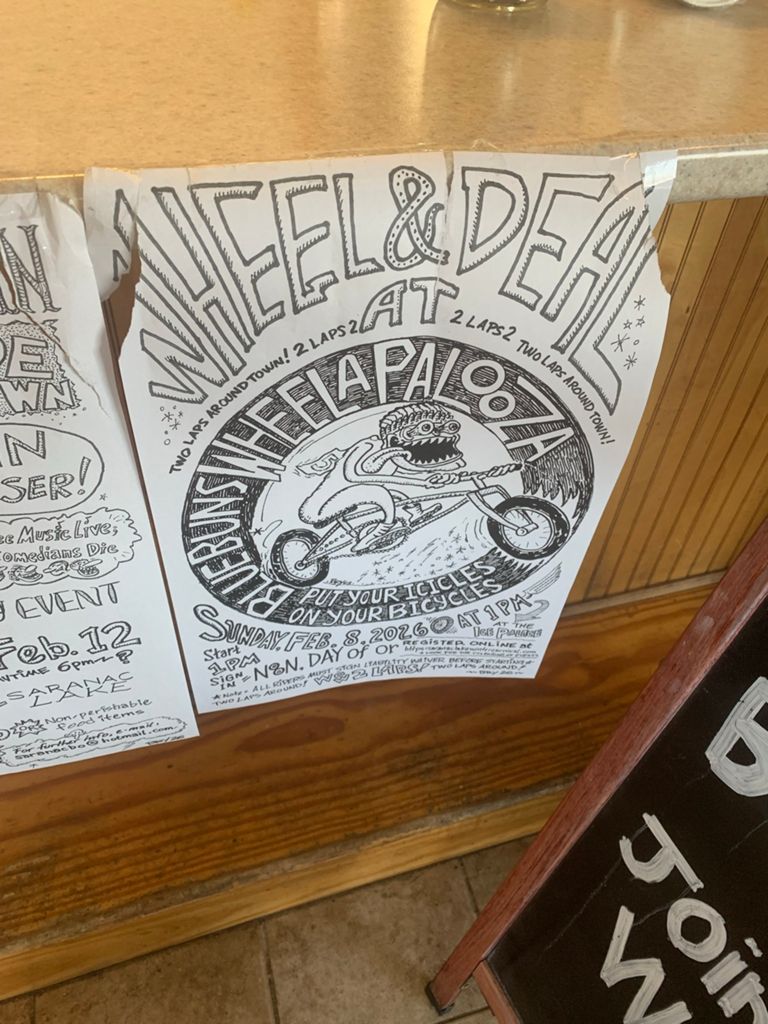 WHEEL & DEAL
AT
TWO LAPS AROUND TOWN! 2 LAPS 2
2 LAPS 2 TWO LAPS AROUND TOWN!
BLUEBUNS WHEELAPALOOZA
PUT YOUR ICICLES
ON YOUR BICYCLES
SUNDAY, FEB. 8, 2026 @ AT 1 PM
AT THE
ICE PALACE
Start
1PM
SIGN
IN = NOON. DAY OF OR REGISTER ONLINE AT
* Note = ALL RIDERS MUST SIGN LIABILITY WAIVER BEFORE STARTING
TWO LAPS AROUND! 2 LAPS! TWO LAPS AROUND!
IN
PE
WN
IN
SER!
ee Music Live,
Comedians Die
EVENT
Feb. 12
TIME 6pm - ?
SARANAC
LAKE
Non-perishable
food items
For further info, e-mail:
saranacbo@hotmail.com
Join
W